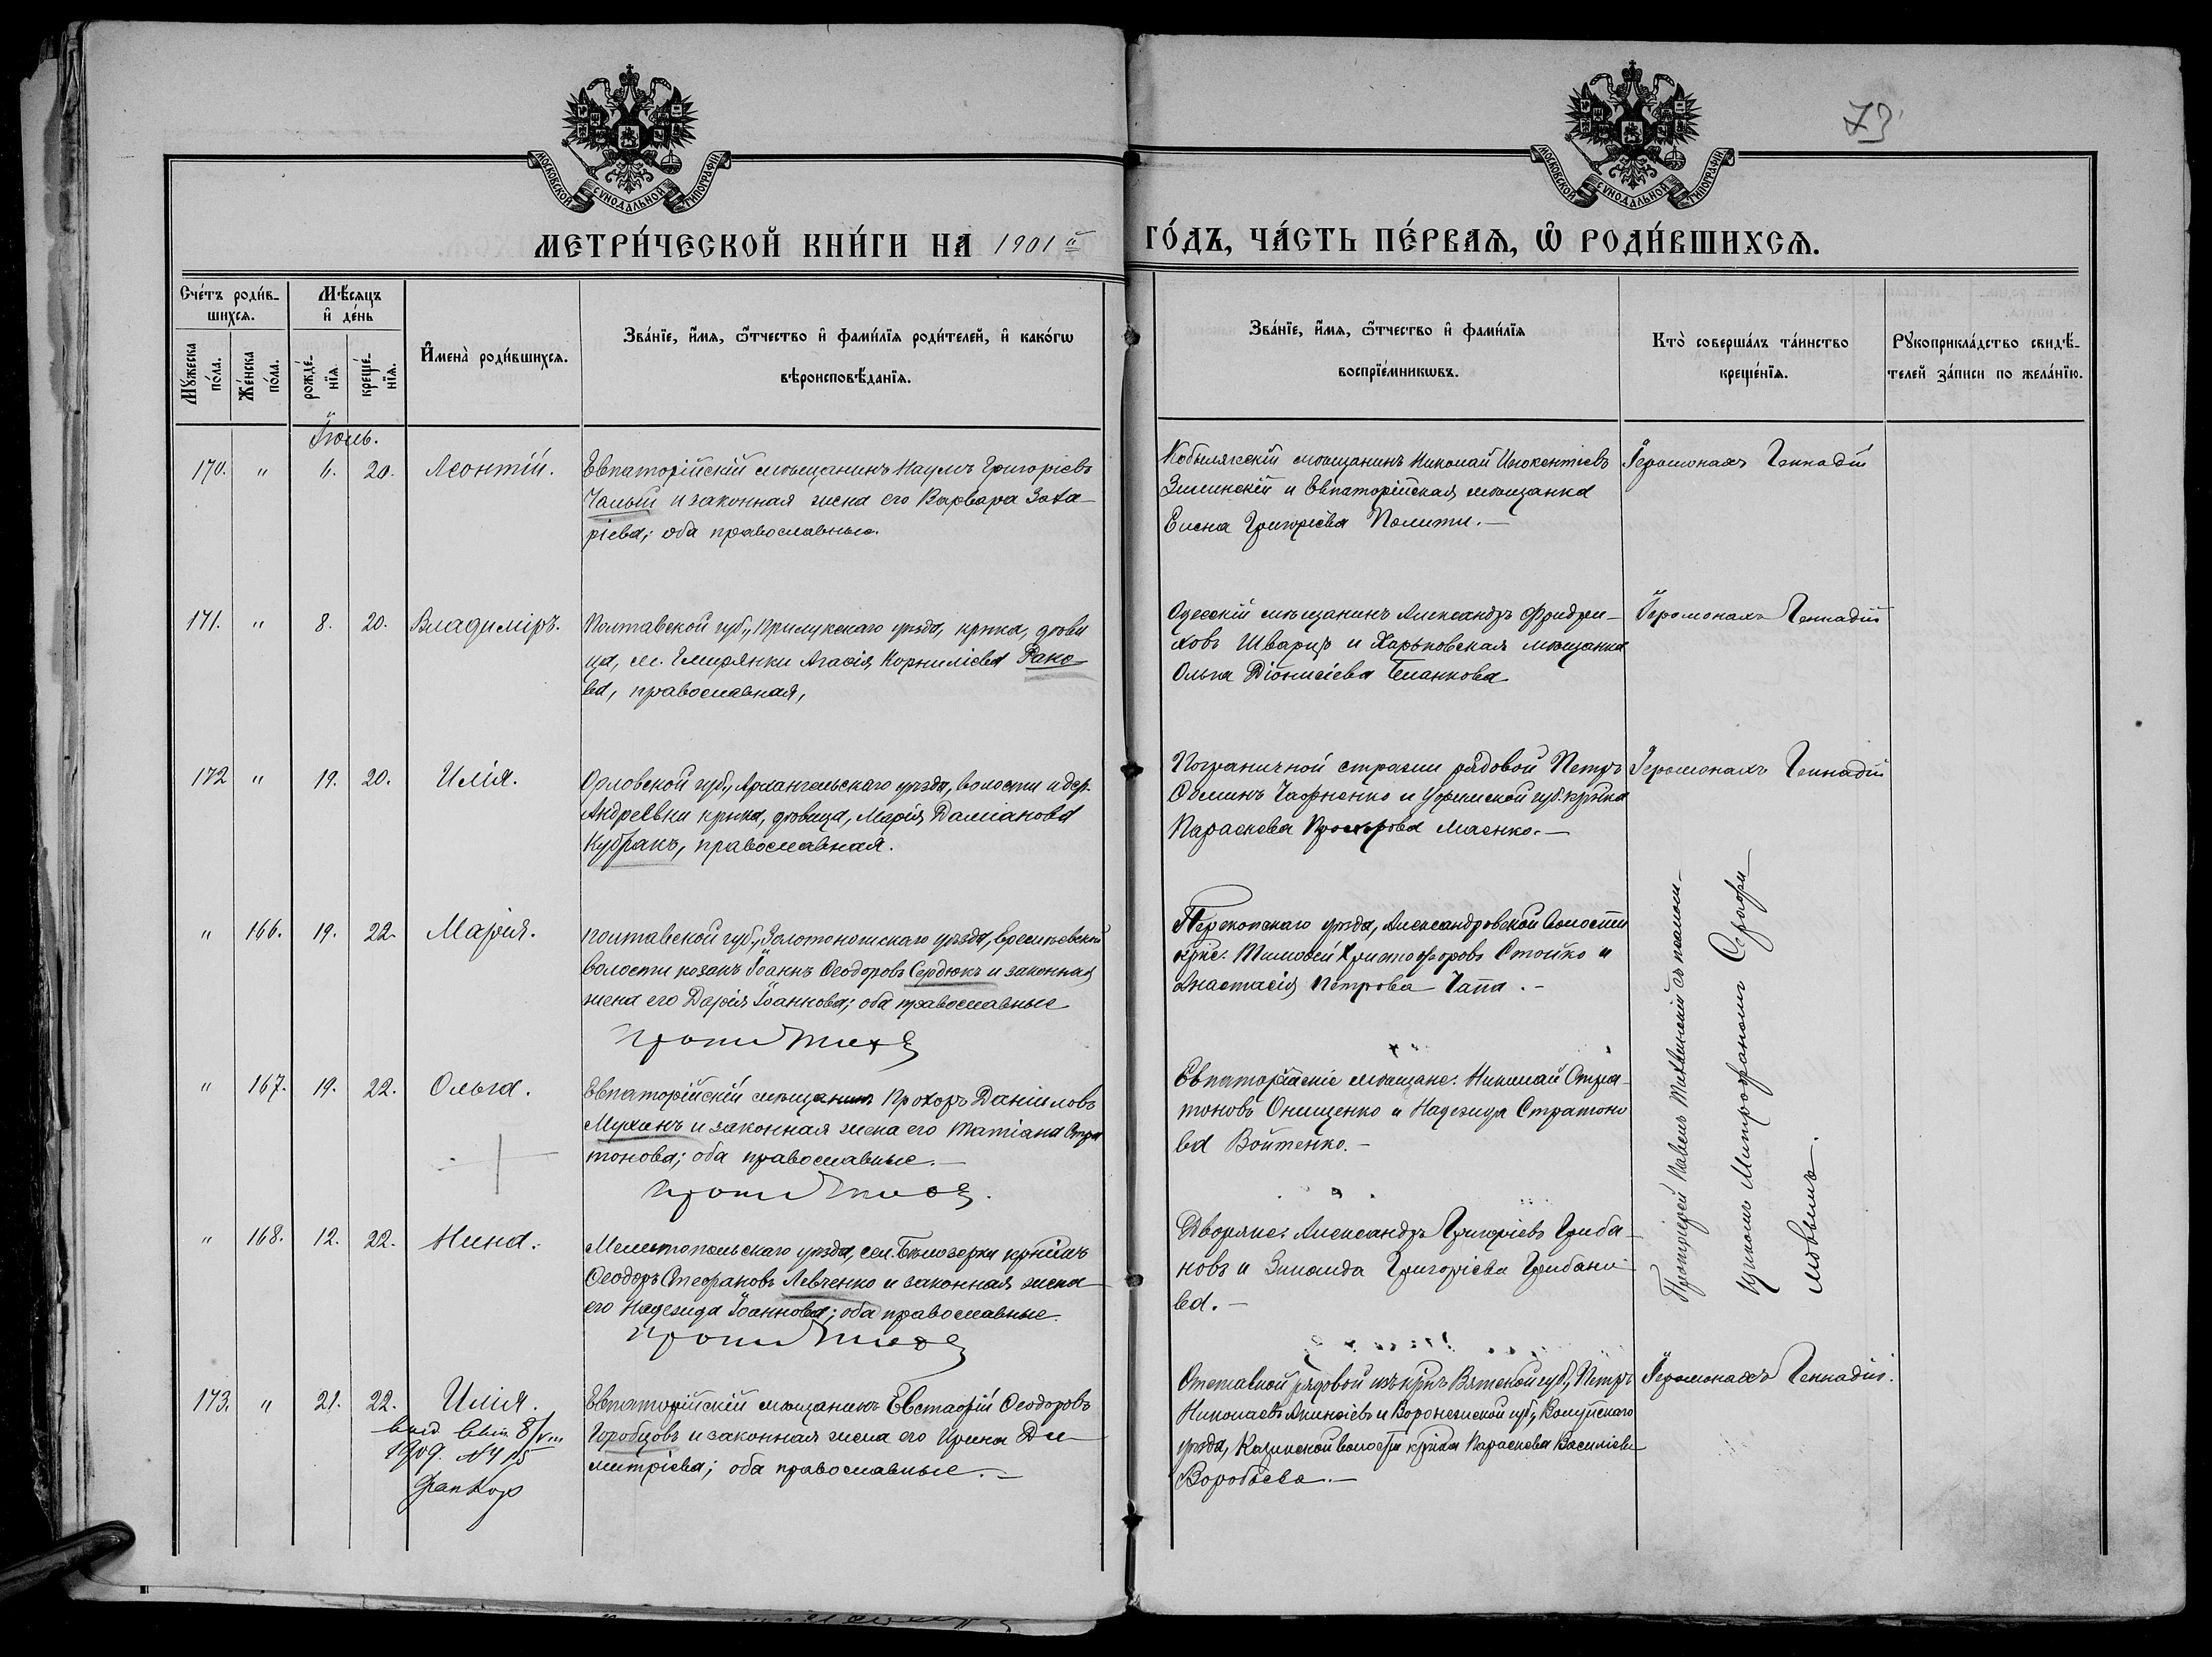 73
МОСКОВСКОЙ СѴНОДАЛЬНОЙ ТИПОГРАФІИ
МОСКОВСКОЙ СѴНОДАЛЬНОЙ ТИПОГРАФІИ
МЕТРИ́ЧЕСКОЙ КНИ́ГИ НА 1901й ГО́ДЪ, ЧА́СТЬ ПЕ́РВАѦ, Ѡ РОДИ́ВШИХСѦ.
Сче́тъ роди́в-
шихсѧ.
Мꙋ́жеска
по́ла.
Же́нска
по́ла.
Мѣ́сѧцъ
и҆ де́нь
рожде́-
нїѧ.
креще́-
нїѧ.
И҆мена̀ роди́вшихсѧ.
Зва́нїе, и҆́мѧ, ѻ҆́тчество и҆ фами́лїѧ роди́телей, и҆ како́гѡ
вѣроисповѣ́данїѧ.
Зва́нїе, и҆́мѧ, ѻ҆́тчество и҆ фами́лїѧ
воспрїе́мникѡвъ.
Кто̀ соверша́лъ та́инство
креще́нїѧ.
Рꙋкоприкла́дство свидѣ́-
телей за́писи по жела́нїю.
Іюль.
170. " 6. 20. Леонтій.
Евпаторійскій мѣщанинъ Наумъ Григоріевъ
Чалый и законная жена его Варвара Заха-
ріева; оба православные.
Кобылякскій мѣщанинъ Николай Инокентіевъ
Зилинскій и Евпаторійская мѣщанка
Елена Григоріева Полити.—
Іеромонахъ Геннадій
171. " 8. 20. Владиміръ.
Полтавской губ., Прилукскаго уѣзда, крънка, дѣви
ца, м. Гмирянки Агафія Корниліева Рако-
ва, православная,
Одесскій мѣщанинъ Александръ Фридри-
ховъ Шварцъ и Харьковская мѣщанка
Ольга Діонисіева Бланкова
Іеромонахъ Геннадій
172 " 19. 20. Илія.
Орловской губ., Архангельскаго уѣзда, волости и дер.
Андреевки крънка, дѣвица, Марія Даміанова
Кубракъ, православная.
Пограничной стражи рядовой Петръ
Ѳоминъ и губ. крънка
Параскева Прохорова Маенко.—
Іеромонахъ Геннадій
" 166. 19. 22. Марія.
Полтавской губ., Золотоношскаго уѣзда,
волости козакъ Іоаннъ Ѳеодоровъ Сердюкъ и законная
жена его Дарія Іоаннова; оба православные
Перекопскаго уѣзда, Александровской волости
крнс. Тимоѳей Христофоровъ Стойко и
Анастасія Петрова Чапа.—
Протоіерей Павелъ Тихвинскій съ псалом-
щикомъ Митрофаномъ Серафи-
мовымъ.
" 167. 19. 22. Ольга.
Евпаторійскій мѣщанинъ Прохоръ Даниловъ
Мухинъ и законная жена его Татіана Стра
тонова; оба православные.—
Евпаторійскіе мѣщане: Николай Стра-
тоновъ Онищенко и Надежда Стратоно
ва Войтенко.—
" 168. 12. 22. Нина.
Мелитопольскаго уѣзда, сел. Бѣлозерки крнинъ
Ѳеодоръ Стефановъ Левченко и законная жена
его Надежда Іоаннова; оба православные.
Дворяне: Александръ Григоріевъ Гриба-
новъ и Зинаида Григоріева Грибано-
ва.—
173. " 21. 22. Илія.
1909. №
Евпаторійскій мѣщанинъ Евстафій Ѳеодоровъ
Горобцовъ и законная жена его Ирина Ди-
митріева; оба православные.—
Отставной рядовой изъ крнъ Вятской губ., Петръ
Николаевъ и Воронежской губ., Валуйскаго
уѣзда, Казинской волости крнка Параскева Василіева
Воробьева.—
Іеромонахъ Геннадій.